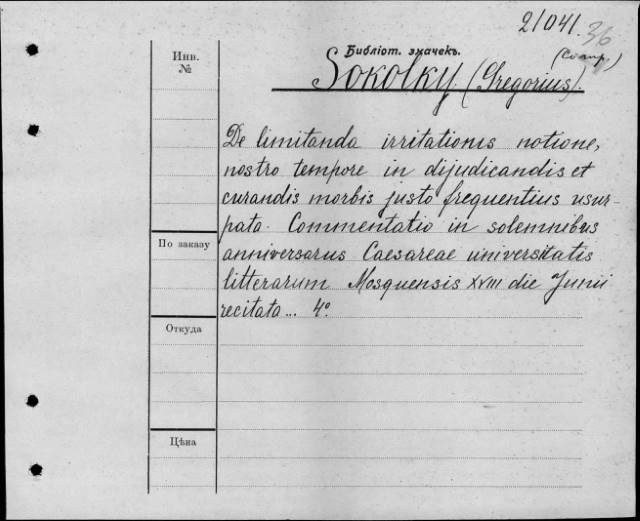 21041. 36
(Comp.)
Инв.
№
Библіот. значекъ.
Sokolky (Gregorius).
De limitanda irritationis notione,
nostro tempore in dijudicandis et
curandis morbis justo frequentius usur-
pata. Commentatio in solemnibus
anniversarus Caesareae universitatis
litterarum Mosquensis XVIII die Junii
recitata... 4º.
По заказу
Откуда
Цѣна